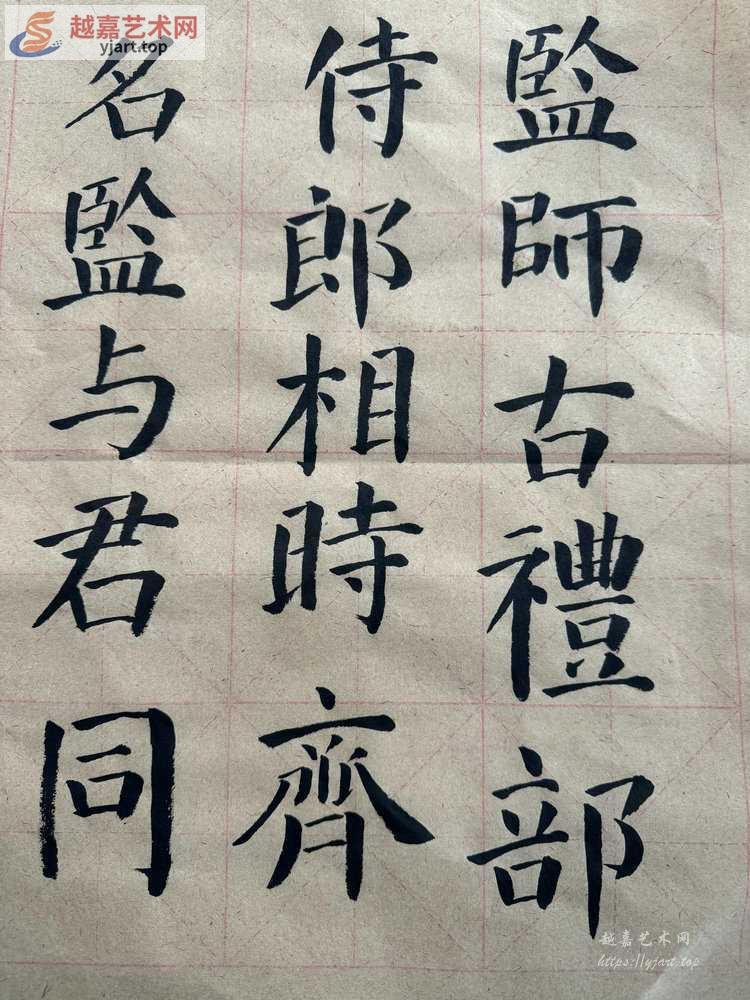 越嘉艺术网
yjart.top
監師古禮部
侍郎相時齊
名監与君同
越嘉艺术网
https://yjart.top